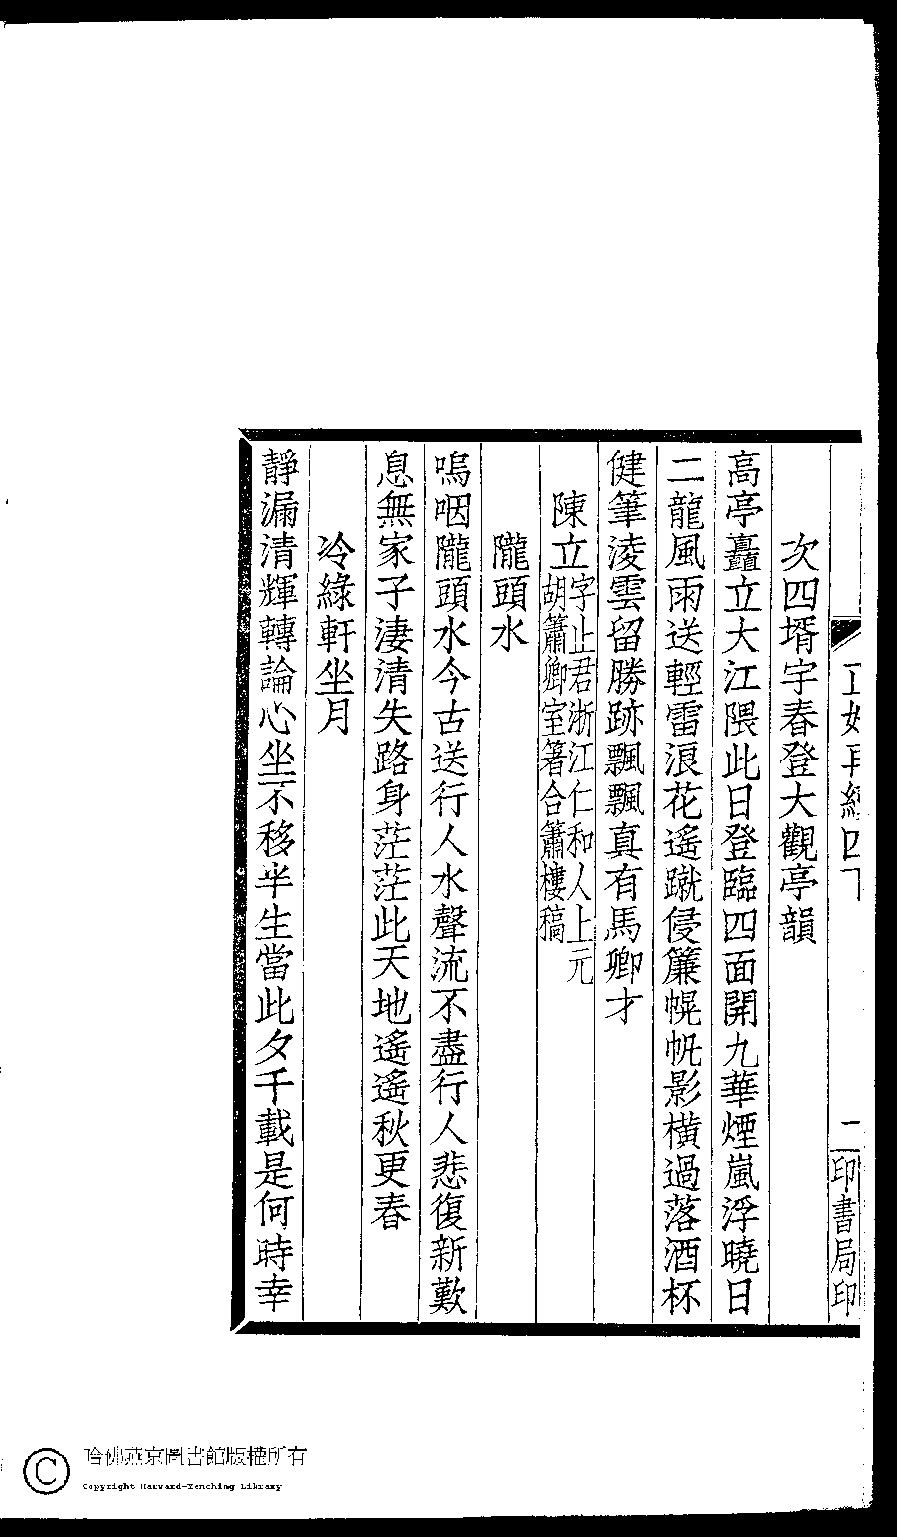 次四壻宇春登大觀亭韻
高亭矗立大江隈此日登臨四面開九華煙嵐浮曉日
二龍風雨送輕雷浪花遙蹴侵簾幌帆影橫過落酒杯
健筆淩雲留勝跡飄飄真有馬卿才
陳立字止君浙江仁和人上元
胡簫卿室箸合簫樓稿
隴頭水
嗚咽隴頭水今古送行人水聲流不盡行人悲復新歎
息無家子淒清失路身茫茫此天地遙遙秋更春
冷綠軒坐月
靜漏清輝轉論心坐不移半生當此夕千載是何時幸
二 印書局印
哈佛燕京圖書館版權所有
Copyright Harvard-Yenching Library